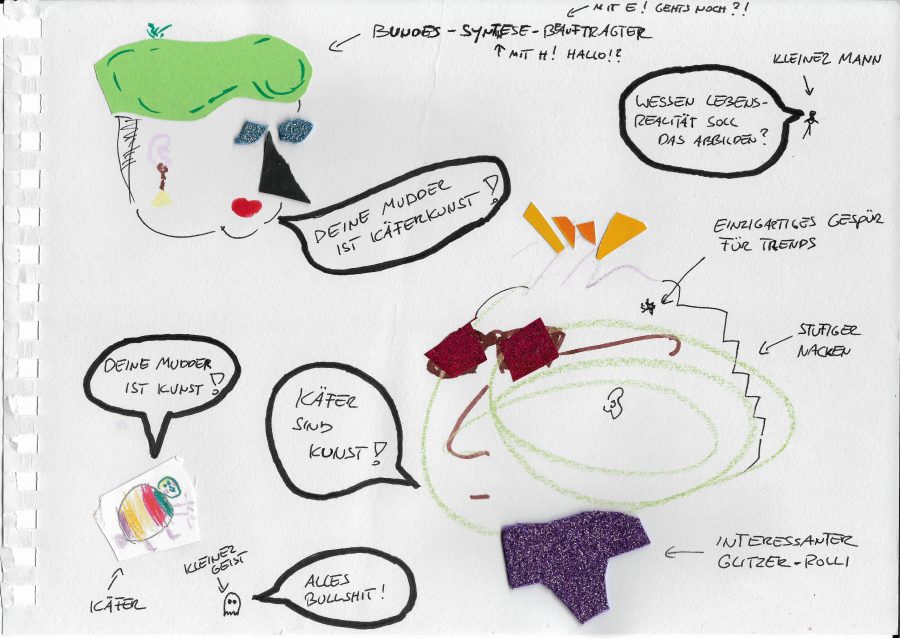 MIT E! GEHTS NOCH?!
BUNDES-SYNTESE-BEAUFTRAGTER
MIT H! HALLO!?
KLEINER MANN
WESSEN LEBENS-
REALITÄT SOLL
DAS ABBILDEN?
DEINE MUDDER
IST KÄFERKUNST!
EINZIGARTIGES GESPÜR
FÜR TRENDS
STUFIGER
NACKEN
DEINE MUDDER
IST KUNST!
KÄFER
SIND
KUNST!
KÄFER
KLEINER
GEIST
ALLES
BULLSHIT!
INTERESSANTER
GLITZER-ROLLI